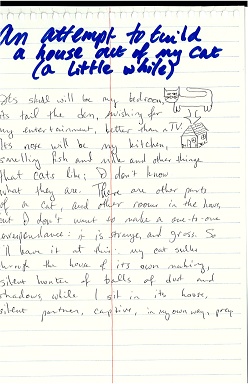 An attempt to build
a house out of my cat
(a little while)
Its skull will be my bedroom,
its tail the den, swishing for
my entertainment, better than a TV.
Its nose will be my kitchen,
smelling fish and milk and other things
that cats like; I don't know
what they are. There are other parts
of a cat, and other rooms in the house,
but I don't want to make a one-to-one
correspondence: it is strange, and gross. So
I'll leave it at this: my cat sulks
through the house of its own making,
silent hunter of balls of dust and
shadows, while I sit in its house,
silent partner, captive, in my own way, prey.